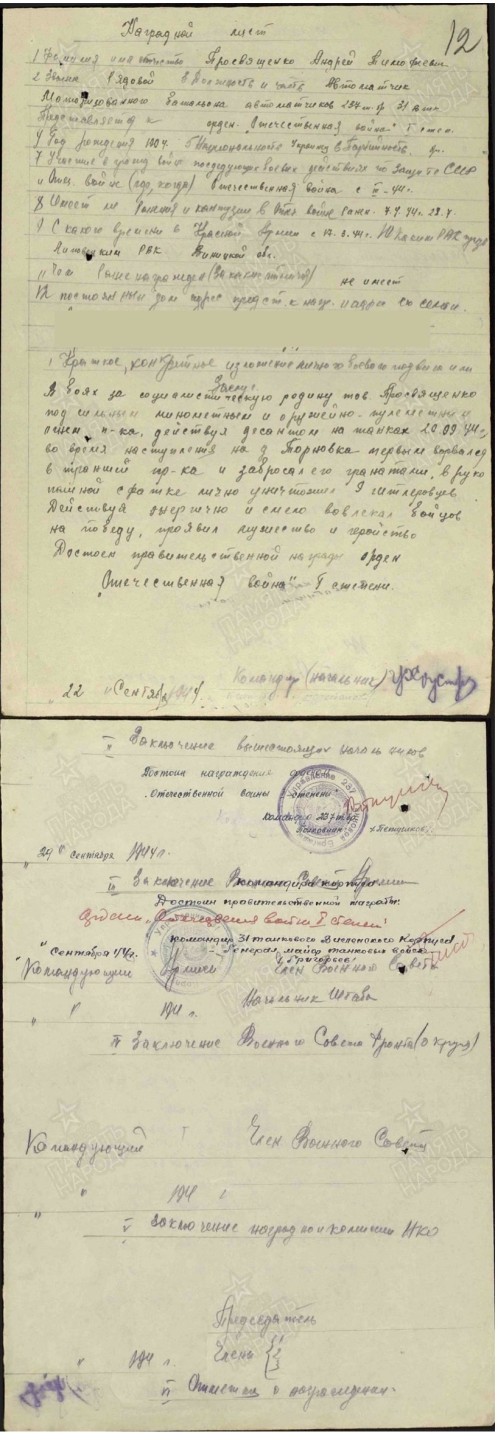 12
Наградной лист
1 Фамилия имя отчество Просвященко Андрей Тимофеевич
2 Звание Рядовой 3 Должность и часть Автоматчик
Моторизованного батальона автоматчиков 237 т.бр 31
Представляется к орден „Отечественная война" I степ.
4 Год рождения 1904 5 Национальность Украинец 6 Партийность
7 Участие в гражд. войне последующих боевых действиях по защите СССР
и Отеч. войне (где, когда) Отечественная война с 44г.
8 Имеет ли ранения и контузии в Отеч войне
9 С какого времени в Красной Армии с 44г.
РВК Виницкой обл.
11 Чем ранее награжден (за какие отличия) не имеет
12 постоянный дом адрес предст. к нагр. и адрес его семьи.
I Краткое, конкретное изложение личного боевого подвига или
заслуг
В боях за социалистическую родину тов. Просвященко
под сильным минометным и оружейно-пулеметным
огнем п-ка, действуя десантом на танках 20.09.44г.
во время наступления на д. Торновка первым ворвался
в траншеи пр-ка и забросал его гранатами, в руко
пашной схватке лично уничтожил 9 гитлеровцев
Действуя энергично и смело вовлекал бойцов
на победу, проявил мужество и геройство
Достоен правительственной награды орден
„Отечественная война" I степени.
Командир (начальник)
22 „Сентября 1944г.
II Заключение вышестоящих начальников
Достоин награждения орденом
„Отечественной войны степени"
Командир 237 т.бр.
Полковник
„29" сентября 1944г.
III Заключение Военного Совета Армии
Командира корпуса
Достоин правительственной награды:
орден „Отечественная война I степени"
Командир 31 танкового Висленского Корпуса
Генерал майор танковых войск
/ Григорьев /
„ " Сентября 44г.
Командующий Армией Член Военного Совета
„ " 194 г. Начальник Штаба
IV Заключение Военного Совета Фронта (Округа)
Командующий Член Военного Совета
„ " 194 г
V Заключение наградной комиссии НКО
Председатель
„ " 194 г. Члены { 1
2
3
VI Отметка о награждении.